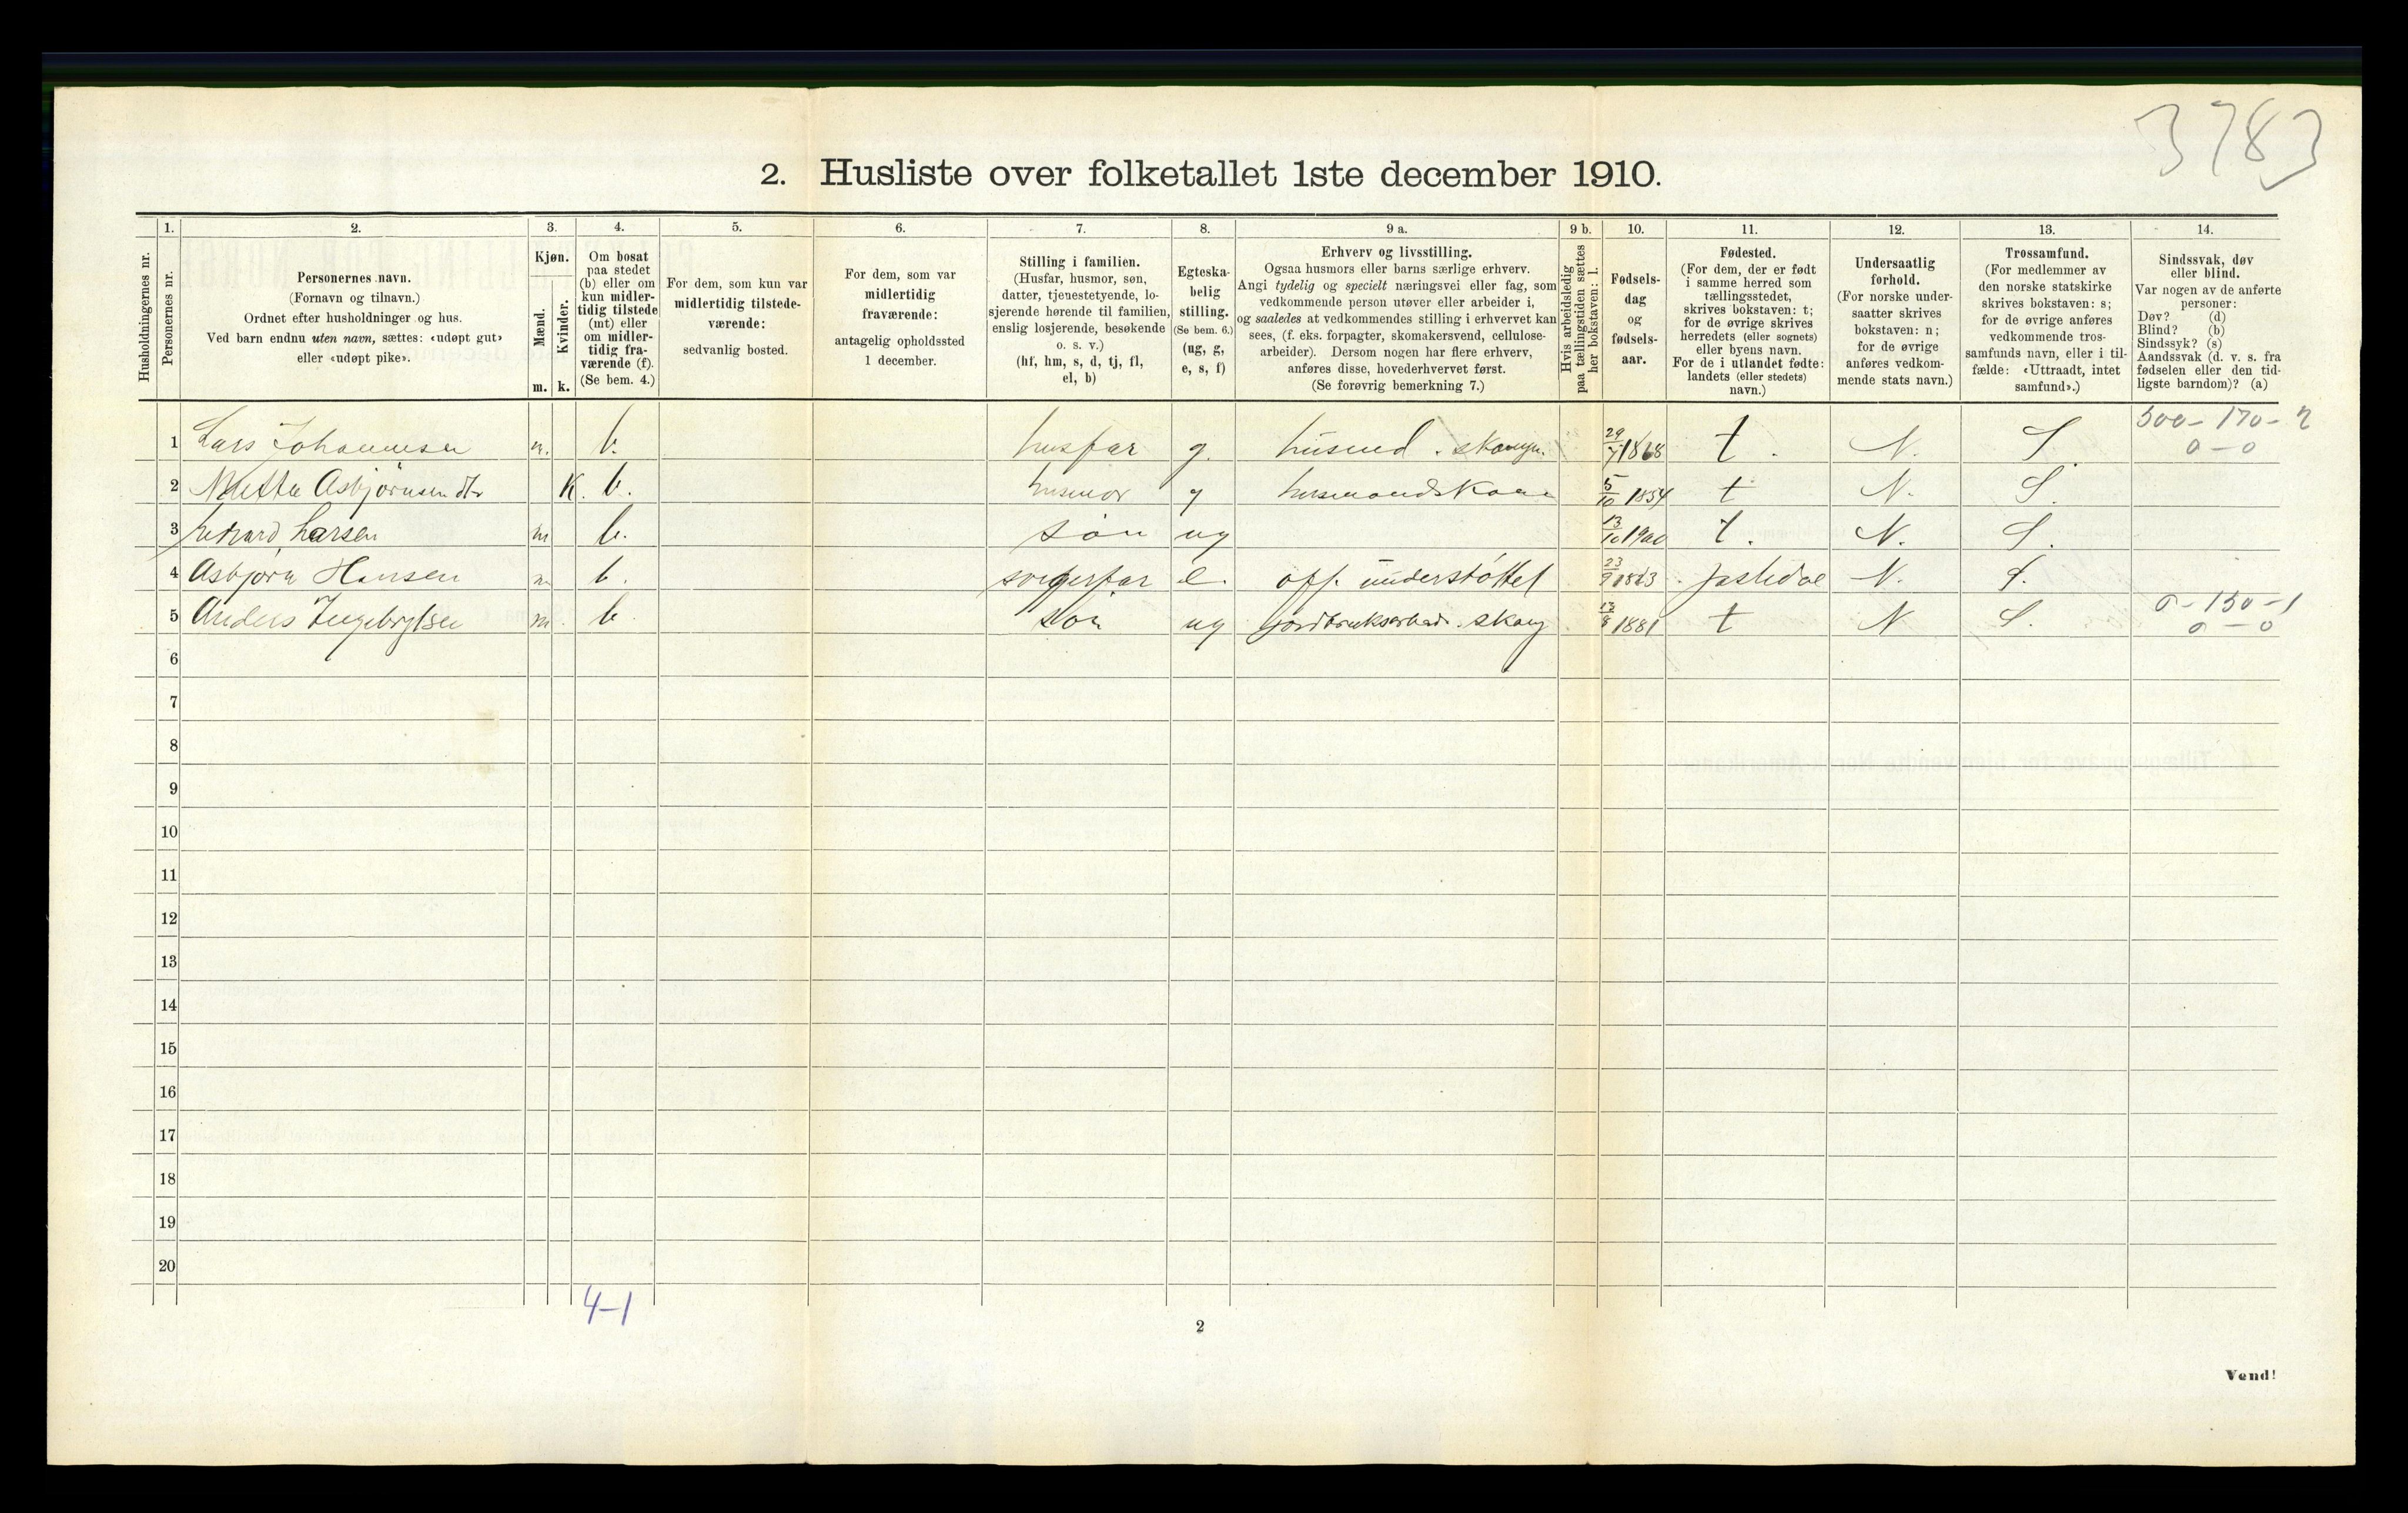 3783
2. Husliste over folketallet 1ste december 1910.
Husholdningernes nr.
1.
Personernes nr.
2.
Personernes navn.
(Fornavn og tilnavn.)
Ordnet efter husholdninger og hus.
Ved barn endnu uten navn, sættes: «udøpt gut»
eller «udøpt pike».
3.
Kjøn.
Mænd.
Kvinder.
m. k.
4.
Om bosat
paa stedet
(b) eller om
kun midler-
tidig tilstede
(mt) eller
om midler-
tidig fra-
værende (f).
(Se bem. 4.)
5.
For dem, som kun var
midlertidig tilstede-
værende:
sedvanlig bosted.
6.
For dem, som var
midlertidig
fraværende:
antagelig opholdssted
1 december.
7.
Stilling i familien.
(Husfar, husmor, søn,
datter, tjenestetyende, lo-
sjerende hørende til familien,
enslig losjerende, besøkende
o. s. v.)
(hf, hm, s, d, tj, fl,
el, b)
8.
Egteska-
belig
stilling.
(Se bem. 6.)
(ug, g,
e, s, f)
9 a.
Erhverv og livsstilling.
Ogsaa husmors eller barns særlige erhverv.
Angi tydelig og specielt næringsvei eller fag, som
vedkommende person utøver eller arbeider i,
og saaledes at vedkommendes stilling i erhvervet kan
sees, (f. eks. forpagter, skomakersvend, cellulose-
arbeider). Dersom nogen har flere erhverv,
anføres disse, hovederhvervet først.
(Se forøvrig bemerkning 7.)
9 b.
Hvis arbeidsledig
paa tællingstiden sættes
her bokstaven: l.
10.
Fødsels-
dag
og
fødsels-
aar.
11.
Fødested.
(For dem, der er født
i samme herred som
tællingsstedet,
skrives bokstaven: t;
for de øvrige skrives
herredets (eller sognets)
eller byens navn.
For de i utlandet fødte:
landets (eller stedets)
navn.)
12.
Undersaatlig
forhold.
(For norske under-
saatter skrives
bokstaven: n;
for de øvrige
anføres vedkom-
mende stats navn.)
13.
Trossamfund.
(For medlemmer av
den norske statskirke
skrives bokstaven: s;
for de øvrige anføres
vedkommende tros-
samfunds navn, eller i til-
fælde: «Uttraadt, intet
samfund».)
14.
Sindssvak, døv
eller blind.
Var nogen av de anførte
personer:
Døv? (d)
Blind? (b)
Sindssyk? (s)
Aandssvak (d. v. s. fra
fødselen eller den tid-
ligste barndom)? (a)
500-170-2
0-0
1 Lars Johannesen m. b. husfar g. husmd. 29/7 1868 t. N. S.
2 Mette Asbjörnsen dtr K. b. husmor g husmandskone 5/10 1854 t N. S.
3 Larsen m b. sön ug 13/10 1900 t. N. S.
4 Asbjörn Hansen m b. svigerfar e. off. understöttet 23/9 Jostedal N. S.
0-150-1
0-0
5 Anders Ingebrigtsen m b sön ug jordbruksarbeid. skoug 13/8 1881 t N S.
6
7
8
9
10
11
12
13
14
15
16
17
18
19
20
4-1
2
Vend!